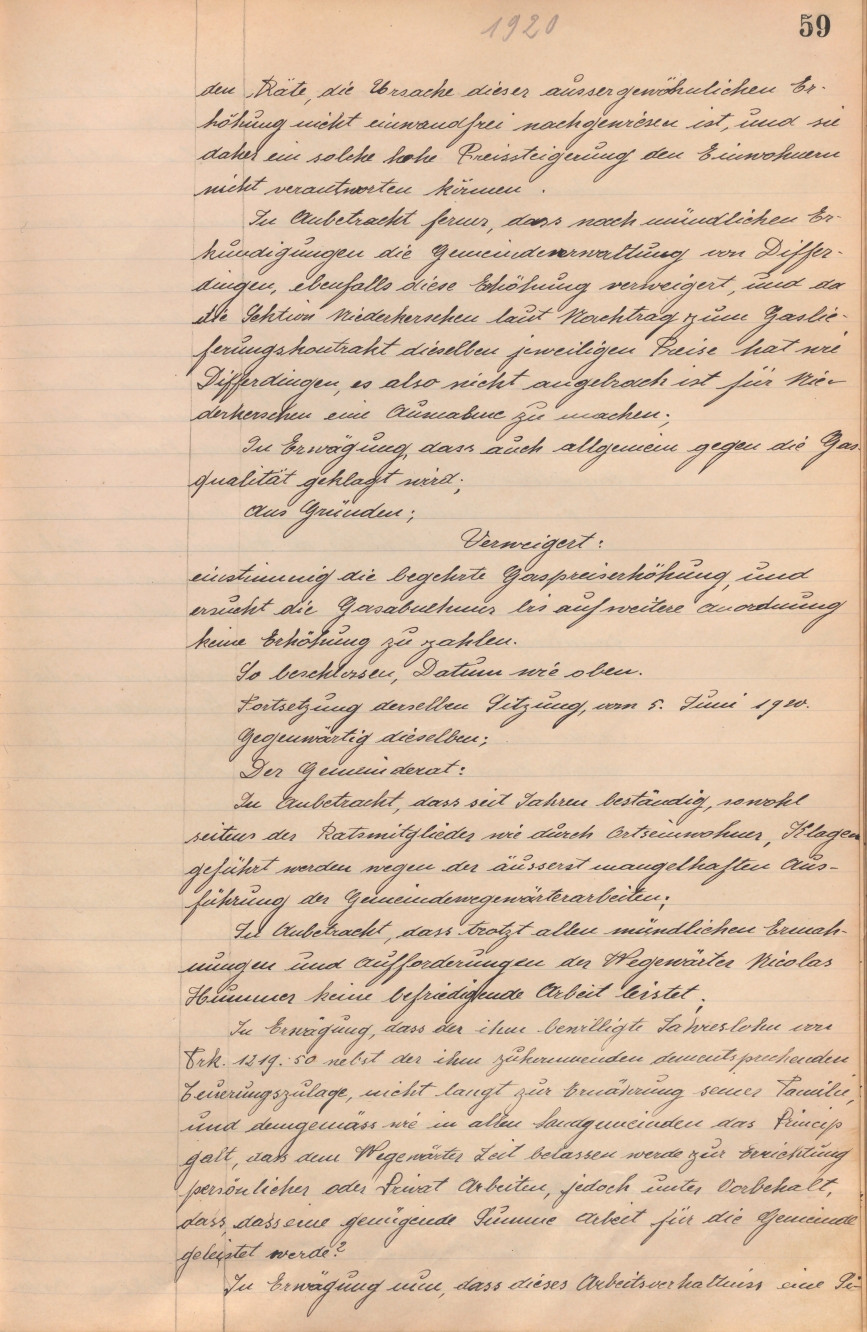 1920
59
den Räte, die Ursache dieser aussergewöhnlichen Er-
höhung nicht einwandfrei nachgewiesen ist, und sie
daher ein solche hohe Preissteigerung den Einwohnern
nicht verantworten können.
In Anbetracht ferner, dass nach mündlichen Er-
kundigungen die Gemeindeverwaltung von Differ-
dingen, ebenfalls diese Erhöhung verweigert, und da
die Sektion Niederkerschen laut Nachtrag zum Gaslie-
ferungskontrakt dieselben jeweiligen Preise hat wie
Differdingen, es also nicht angebrach ist für Nie-
derkerschen eine Ausnahme zu machen;
In Erwägung, dass auch allgemein gegen die Gas-
qualität geklagt wird;
Aus Gründen;
Verweigert:
einstimmig die begehrte Gaspreiserhöhung, und
ersucht die Gasabnehmer bis auf weitere Anordnung
keine Erhöhung zu zahlen.
So beschlossen, Datum wie oben.
Fortsetzung derselben Sitzung, vom 5. Juni 1920.
Gegenwärtig dieselben;
Der Gemeinderat:
In Anbetracht, dass seit Jahren beständig, sowohl
seitens der Ratsmitglieder wie durch Ortseinwohner, Klagen
geführt werden wegen der äusserst mangelhaften Aus-
führung der Gemeindewegewärterarbeiten;
In Anbetracht, dass trotzt allen mündlichen Ermah-
nungen und Aufforderungen der Wegewärter Nicolas
Hummer keine befriedigende Arbeit leistet;
In Erwägung, dass der ihm bewilligte Jahreslohn von
Frk. 1219.50 nebst der ihm zukommenden dementsprechenden
Teuerungszulage, nicht langt zur Ernährung seiner Familie;
und demgemäss wie in allen Landgemeinden das Princip
galt, dass dem Wegewärter Zeit belassen werde zur Errichtung
persönlicher oder Privat Arbeiten, jedoch unter Vorbehalt,
dass, dass eine genügende Summe Arbeit für die Gemeinde
geleistet werde?
In Erwägung nun, dass dieses Arbeitsverhaltniss eine Si-